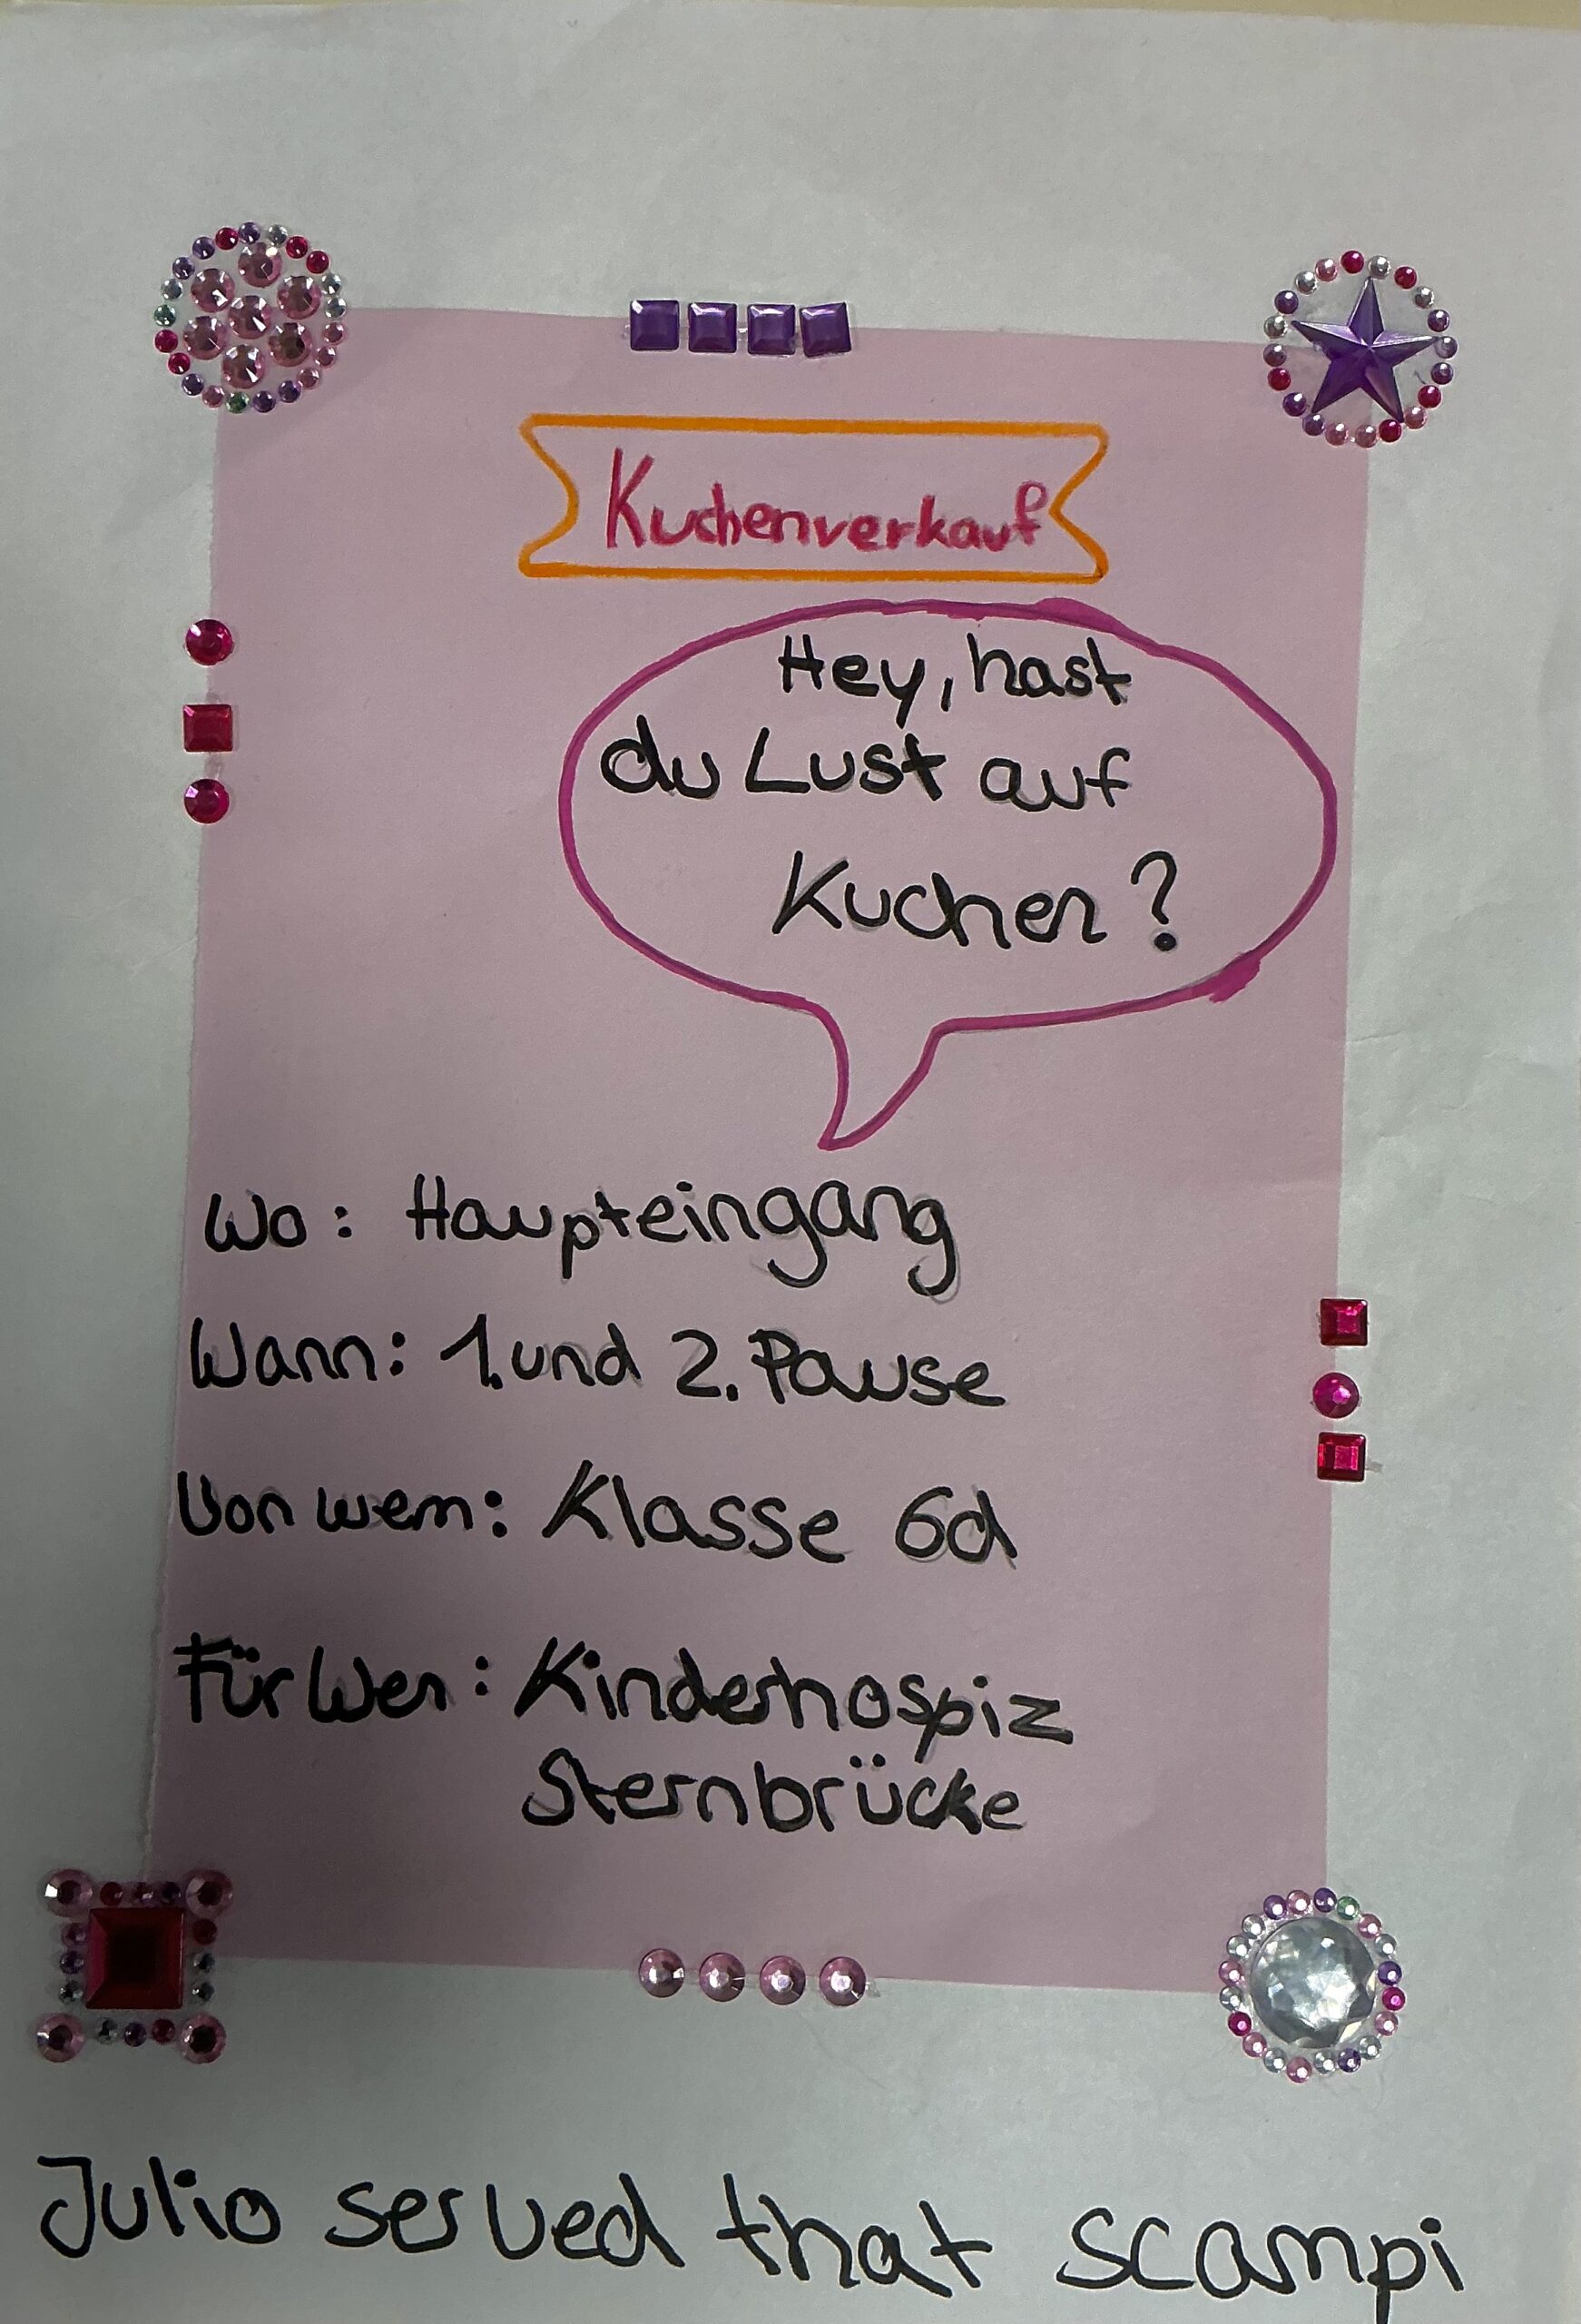 Kuchenverkauf
Hey, hast
du Lust auf
Kuchen?
Wo: Haupteingang
Wann: 1. und 2. Pause
Von wem: Klasse 6d
Für Wen: Kinderhospiz
Sternbrücke
Julio served that scampi